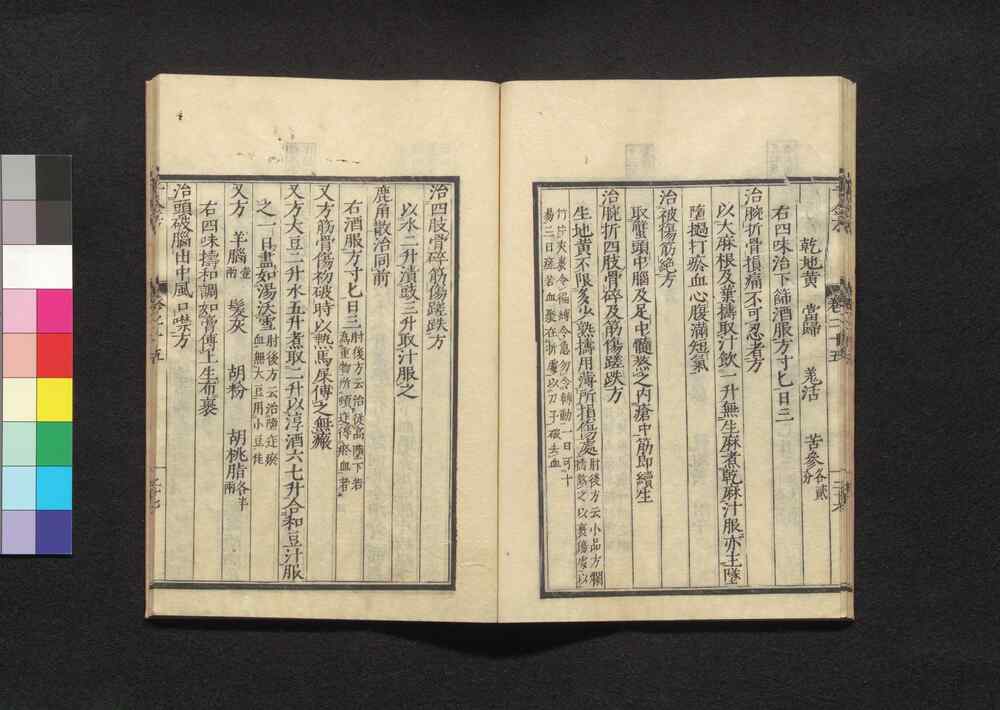 乾地黄　當歸　羌活　苦參各貳分
右四味治下篩酒服方寸匕日三
治腕折骨損痛不可忍者方
以大麻根及葉擣取汁飲一升無生麻煮乾麻汁服亦主墜
墮撾打瘀血心腹滿短氣
治被傷筋絶方
取蟹頭中腦及足中髓熬之内瘡中筋即續生
治腕折四肢骨碎及筋傷蹉跌方
生地黄不限多少熟擣用薄所損傷處肘後方云小品方爛擣熬之以裹傷處以
竹片夾裹令徧縛令急勿令轉動一日可十
易三日差若血聚在折處以刀子破去血
治四肢骨碎筋傷蹉跌方
以水二升漬豉三升取汁服之
鹿角散治同前
右酒服方寸匕日三肘後方云治從高墮下若爲重物所頓迮得瘀血者
又方筋骨傷初破時以熱馬屎傅之無瘢
又方大豆二升水五升煮取二升以淳酒六七升合和豆汁服
之一日盡如湯沃雪肘後方云治墮迮瘀血無大豆用小豆佳
又方　羊腦壹兩　髮灰　胡粉　胡桃脂各半兩
右四味擣和調如膏傅上生布裹
治頭破腦出中風口噤方